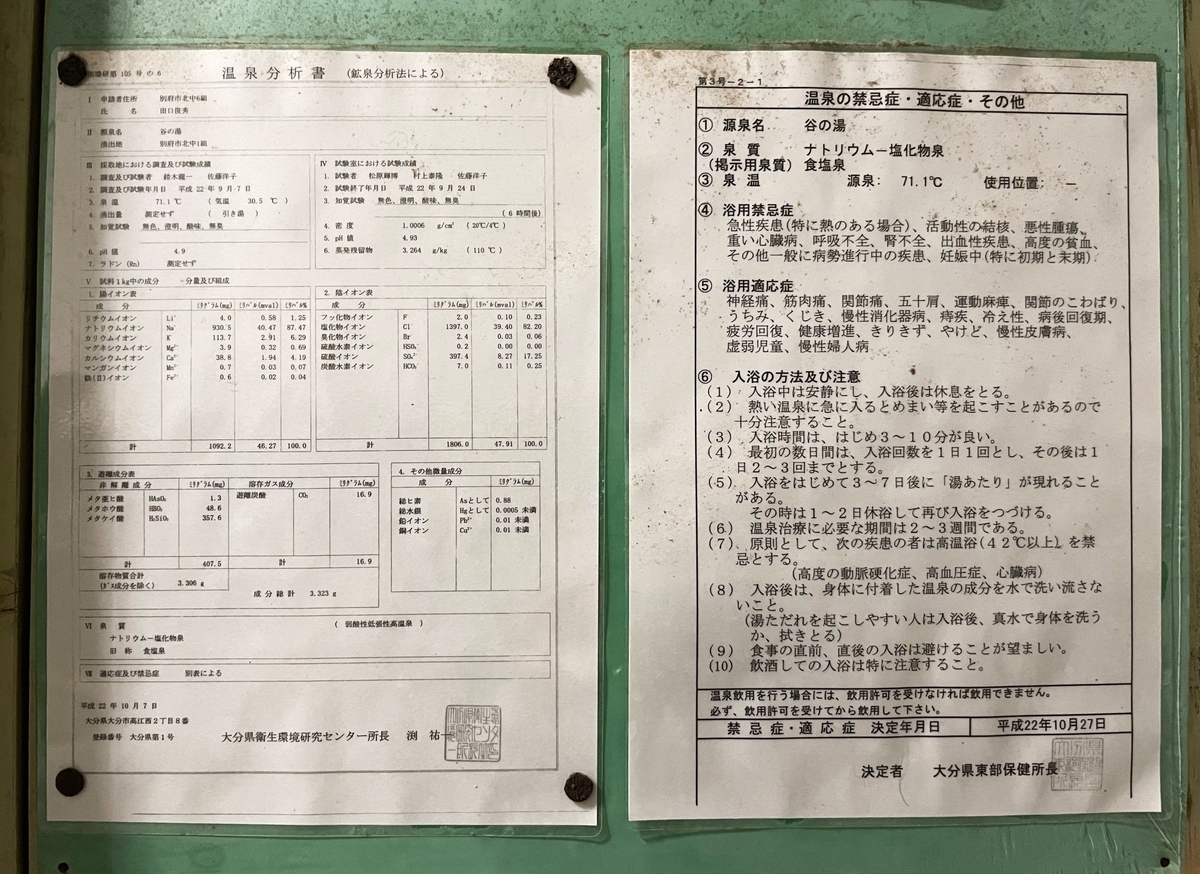 第 105 号 の 6
温 泉 分 析 書 (鉱泉分析法による)
Ⅰ 申請者住所 別府市北中6組
氏 名 田口俊秀
Ⅱ 源泉名 谷の湯
湧出地 別府市北中1組
Ⅲ 採取地における調査及び試験成績
1. 調査及び試験者 鈴木龍一 佐藤洋子
2. 調査及び試験年月日 平成 22 年 9 月 7 日
3. 泉 温 71.1 ℃ ( 気温 30.5 ℃ )
4. 湧出量 測定せず ( 引き湯 )
5. 知覚試験 無色、澄明、酸味、無臭
6. pH 値 4.9
7. ラドン (Rn) 測定せず
Ⅳ 試験室における試験成績
1. 試験者 松原輝博 村上泰隆 佐藤洋子
2. 試験終了年月日 平成 22 年 9 月 24 日
3. 知覚試験 無色、澄明、酸味、無臭
( 6 時間後)
4. 密 度 1.0006 g/cm³ ( 20℃/4℃ )
5. pH 値 4.93
6. 蒸発残留物 3.264 g/kg ( 110 ℃ )
Ⅴ 試料1kg中の成分 分量及び組成
1. 陽イオン表
成 分 ミリグラム(mg) ミリバル(mval) ミリバル%
リチウムイオン Li⁺ 4.0 0.58 1.25
ナトリウムイオン Na⁺ 930.5 40.47 87.47
カリウムイオン K⁺ 113.7 2.91 6.29
マグネシウムイオン Mg²⁺ 3.9 0.32 0.69
カルシウムイオン Ca²⁺ 38.8 1.94 4.19
マンガンイオン Mn²⁺ 0.7 0.03 0.07
鉄(Ⅱ)イオン Fe²⁺ 0.6 0.02 0.04
計 1092.2 46.27 100.0
2. 陰イオン表
成 分 ミリグラム(mg) ミリバル(mval) ミリバル%
フッ化物イオン F⁻ 2.0 0.10 0.23
塩化物イオン Cl⁻ 1397.0 39.40 82.20
臭化物イオン Br⁻ 2.4 0.03 0.06
硫酸水素イオン HSO₄⁻ 0.2 0.00 0.00
硫酸イオン SO₄²⁻ 397.4 8.27 17.25
炭酸水素イオン HCO₃⁻ 7.0 0.11 0.25
計 1806.0 47.91 100.0
3. 遊離成分表
非 解 離 成 分 ミリグラム(mg) 溶存ガス成分 ミリグラム(mg)
メタ亜ヒ酸 HAsO₂ 1.3 遊離炭酸 CO₂ 16.9
メタホウ酸 HBO₂ 48.6
メタケイ酸 H₂SiO₃ 357.6
計 407.5 計 16.9
溶存物質合計
(ガス成分を除く) 3.306 g
成 分 総 計 3.323 g
4. その他微量成分
成 分 ミリグラム(mg)
総ヒ素 Asとして 0.88
総水銀 Hgとして 0.0005 未満
鉛イオン Pb²⁺ 0.01 未満
銅イオン Cu²⁺ 0.01 未満
Ⅵ 泉 質 ( 弱酸性低張性高温泉 )
ナトリウム－塩化物泉
旧 称 食塩泉
Ⅶ 適応症及び禁忌症 別表による
平成 22 年 10 月 7 日
大分県大分市高江西2丁目8番
登録番号 大分県第1号
大分県衛生環境研究センター所長 渕 祐一
第3号－2－1
温泉の禁忌症・適応症・その他
① 源泉名 谷の湯
② 泉 質 ナトリウム－塩化物泉
(掲示用泉質) 食塩泉
③ 泉 温 源泉: 71.1℃ 使用位置: －
④ 浴用禁忌症
急性疾患(特に熱のある場合)、活動性の結核、悪性腫瘍、
重い心臓病、呼吸不全、腎不全、出血性疾患、高度の貧血、
その他一般に病勢進行中の疾患、妊娠中(特に初期と末期)
⑤ 浴用適応症
神経痛、筋肉痛、関節痛、五十肩、運動麻痺、関節のこわばり、
うちみ、くじき、慢性消化器病、痔疾、冷え性、病後回復期、
疲労回復、健康増進、きりきず、やけど、慢性皮膚病、
虚弱児童、慢性婦人病
⑥ 入浴の方法及び注意
(1) 入浴中は安静にし、入浴後は休息をとる。
(2) 熱い温泉に急に入るとめまい等を起こすことがあるので
十分注意すること。
(3) 入浴時間は、はじめ3～10分が良い。
(4) 最初の数日間は、入浴回数を1日1回とし、その後は1
日2～3回までとする。
(5) 入浴をはじめて3～7日後に「湯あたり」が現れること
がある。
その時は1～2日休浴して再び入浴をつづける。
(6) 温泉治療に必要な期間は2～3週間である。
(7) 原則として、次の疾患の者は高温浴(42℃以上)を禁
忌とする。
(高度の動脈硬化症、高血圧症、心臓病)
(8) 入浴後は、身体に付着した温泉の成分を水で洗い流さな
いこと。
(湯ただれを起こしやすい人は入浴後、真水で身体を洗う
か、拭きとる)
(9) 食事の直前、直後の入浴は避けることが望ましい。
(10) 飲酒しての入浴は特に注意すること。
温泉飲用を行う場合には、飲用許可を受けなければ飲用できません。
必ず、飲用許可を受けてから飲用して下さい。
禁 忌 症・適 応 症 決定年月日 平成22年10月27日
決定者 大分県東部保健所長